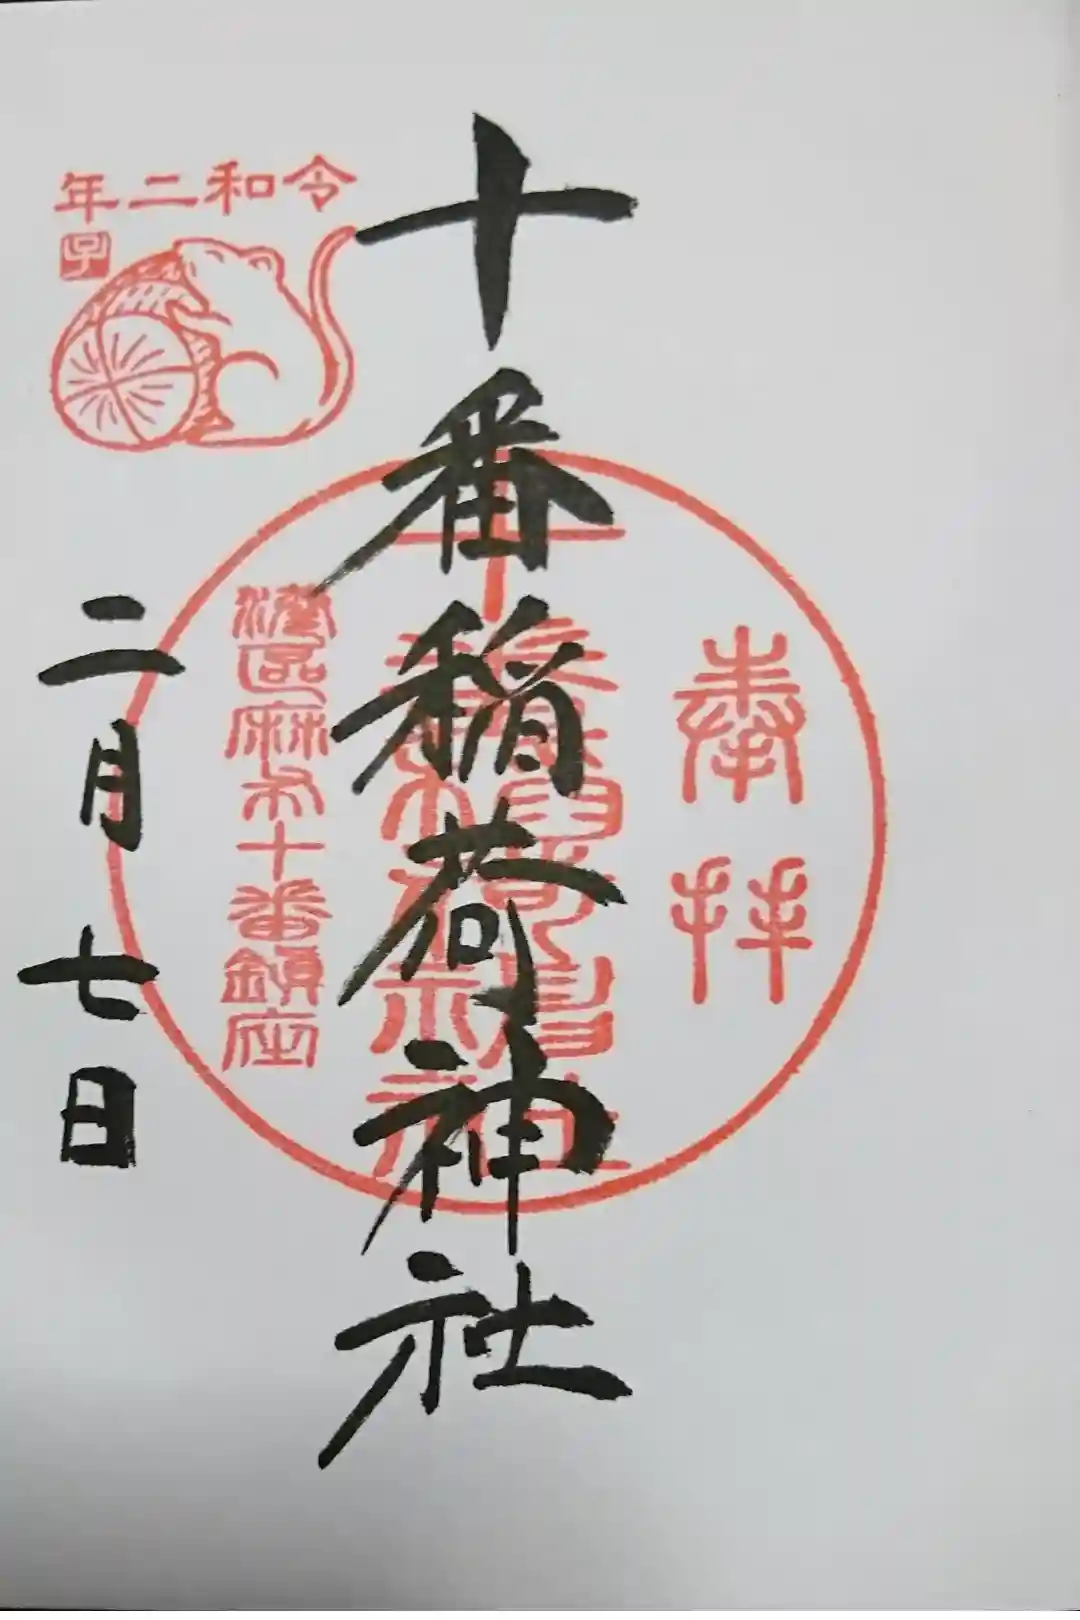 奉拝
十番稲荷神社
港区麻布十番鎮座
令和二年
子
二月七日